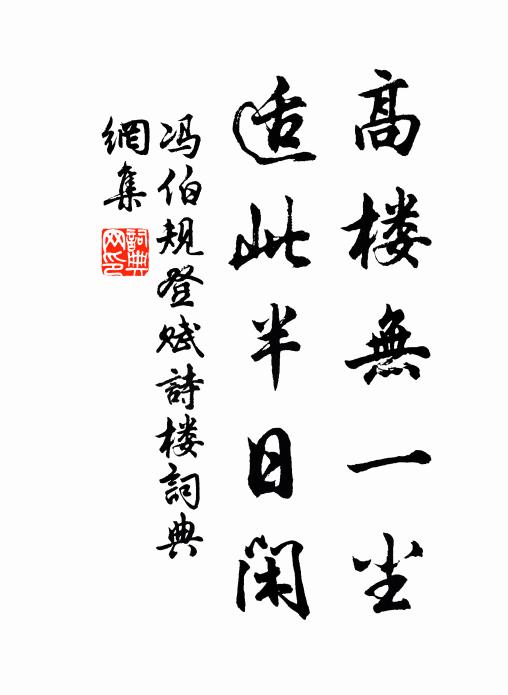 高楼無一尘
适此半日闲
冯伯规登赋詩楼詞典
網集
詞典
网印